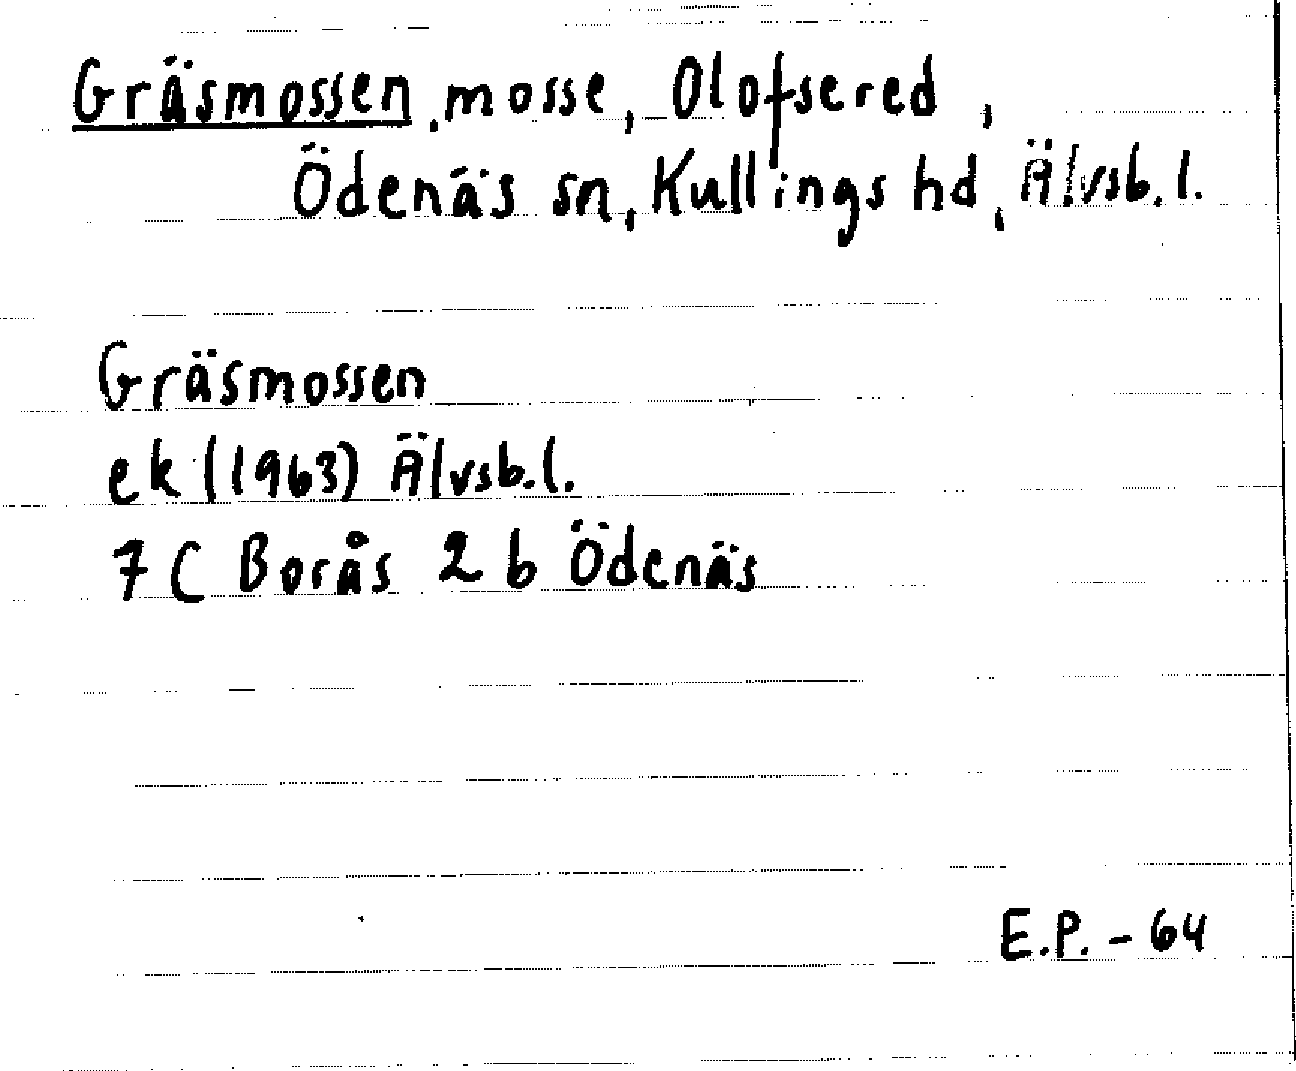 Gräsmossen, mosse, Olofsered,
Ödenäs sn, Kullings hd, Älvsb.l.
Gräsmossen
ek (1963) Älvsb.l.
7 C Borås 2 b Ödenäs
E.P. - 64